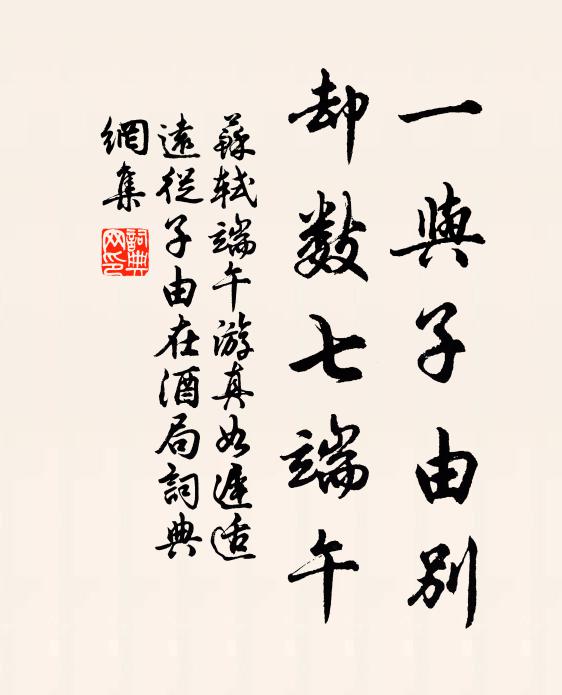 一與子由別
却數七端午
蘇軾端午游真如遲适
遠從子由在酒局詞典
網集
詞典
网印